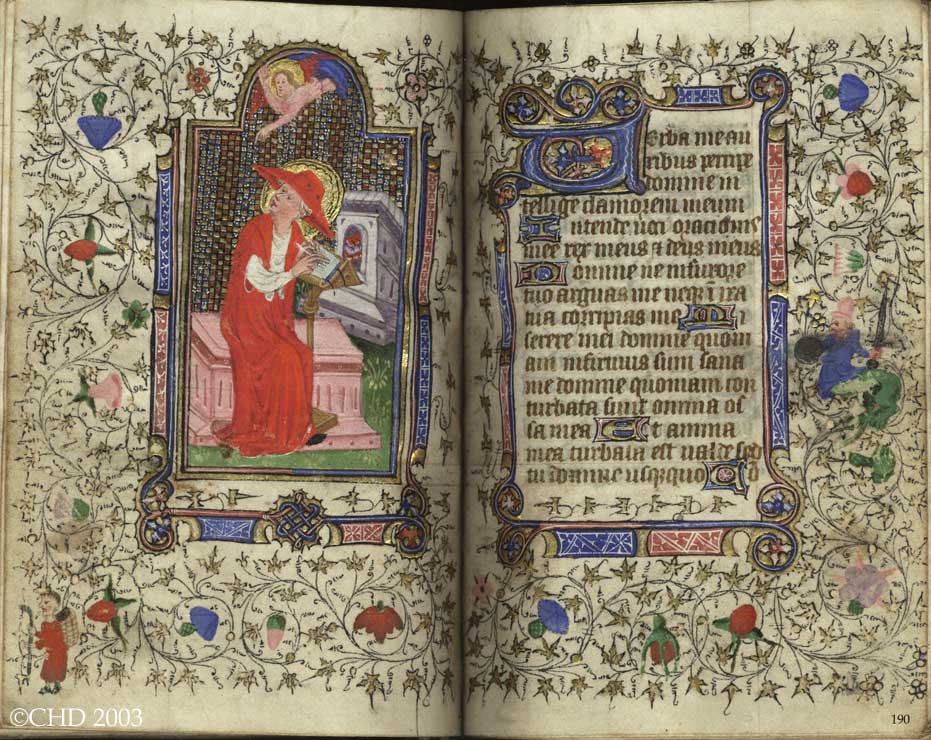 Uerba mea au
ribus percipe
domine in
tellige clamorem meum
Intende uoci orationis
mee rex meus & deus meus
Domine ne in furore
tuo arguas me neq in ira
tua corripias me Mi
serere mei domine quoni
am infirmus sum sana
me domine quoniam con
turbata sunt omnia os
sa mea Et anima
mea turbata est ualde sed
tu domine usquequo
©CHD 2003
190